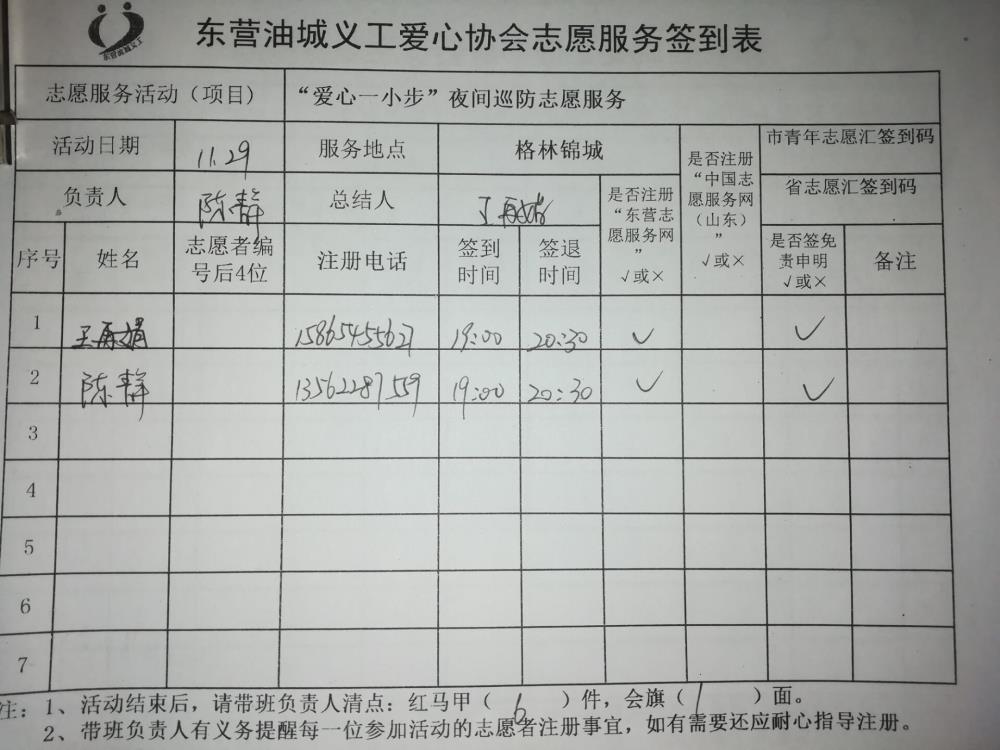 东营油城义工
东营油城义工爱心协会志愿服务签到表
志愿服务活动（项目） “爱心一小步”夜间巡防志愿服务
活动日期 11.29 服务地点 格林锦城 是否注册“中国志愿服务网（山东）”√或× 市青年志愿汇签到码
负责人 陈静 总结人 是否注册“东营志愿服务网”√或× 省志愿汇签到码
序号 姓名 志愿者编号后4位 注册电话 签到时间 签退时间 是否签免责申明√或× 备注
1 王再娟 15865455627 19:00 20:30 ✓ ✓
2 陈静 13562287559 19:00 20:30 ✓ ✓
3
4
5
6
7
注：1、活动结束后，请带班负责人清点：红马甲（ 6 ）件，会旗（ 1 ）面。
2、带班负责人有义务提醒每一位参加活动的志愿者注册事宜，如有需要还应耐心指导注册。